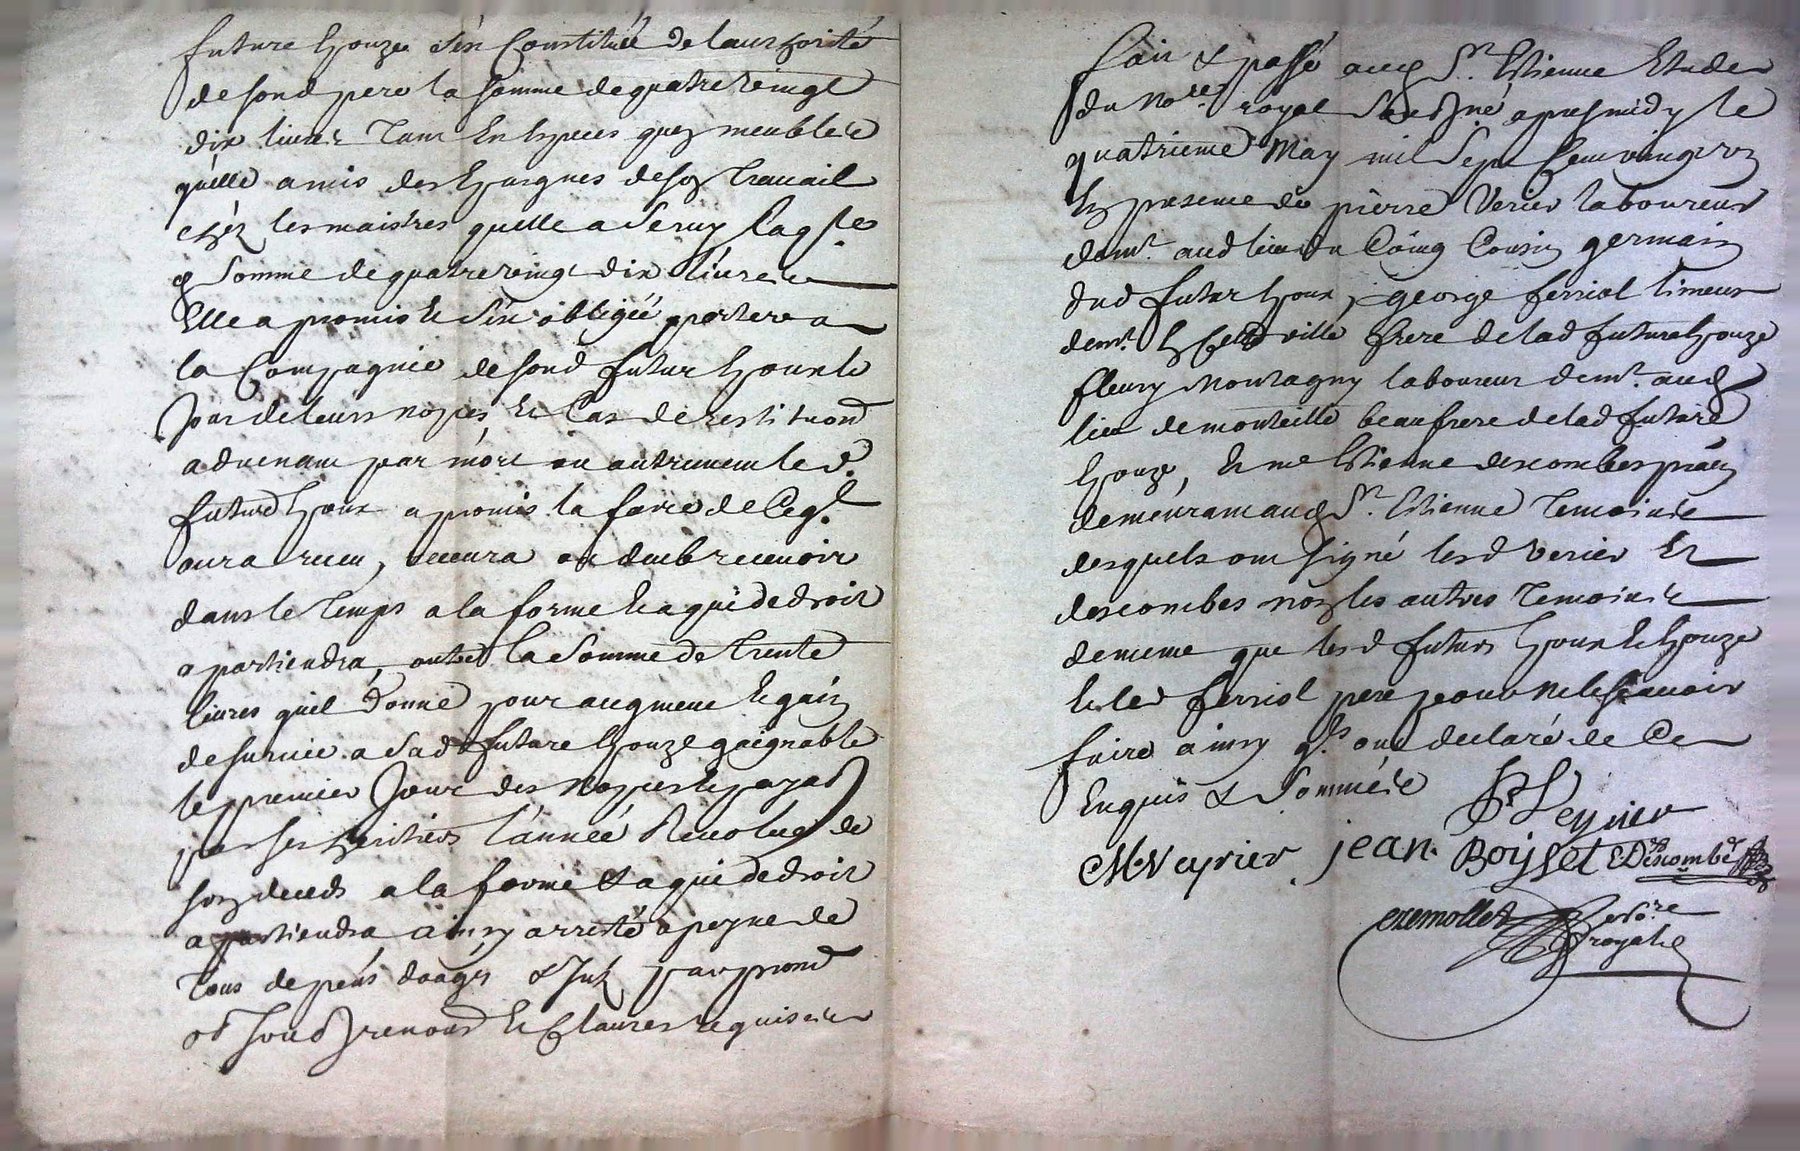 future Epouze s'est Constituée de lauthorité
de sond pere la somme de quatre vingt
dix livres tant En Especes quez meubles
qu'elle a mis des Epargnes de soz travail
chéz les maistres quelle a servy laqle
somme de quatre vingt dix livres
Elle a promis et s'est obligée apporter a
la Compagnie de sond futur Epoux le
Jour de leurs nopces, Et Cas de restituond
advenant par mort ou autrement le d.
futur Epoux a promis la faire de Ce ql
aura receu, recevra ou deub recevoir
dans le temps a la forme Et a qui de droit
apartiendra, outre la somme de trente
livres quil donne pour augment Et gain
de survie a sad future Epouze gaignable
le premier Jour des Nopces Et payab
par ses heritiers l'année Revolue de
soz deceds a la forme & a qui de droit
apartiendra ainsy arreté a peyne de
tous depens doages & Int par promd
ob soud renond Et Clauses requises
fait & passé aud St. Estienne Etude
du Nore royal sousigné apres midy le
quatrieme May mil Sept Cent vingt
Ez presence de pierre Verier laboureur
demt. aud lieu du Coing Cousin germain
dud futur Epoux, george ferriol limeur
demt. Ez Cette ville frere de lad future Epouze
fleury Montagny laboureur demt. aud
lieu de monteille beaufrere de lad future
Epouze, Et me Estienne descombes praen
demeurant aud St. Estienne temoins
desquels ont signé lesd verier Et
descombes noz les autres temoins
de meme que lesd futurs Epoux Et Epouze
Et led ferriol pere pour ne le sçavoir
faire ainsy qls ont declaré de Ce
Enquis & sommés
P Veyrier
M. Veyrier jean. Boisset E Descombes
royal